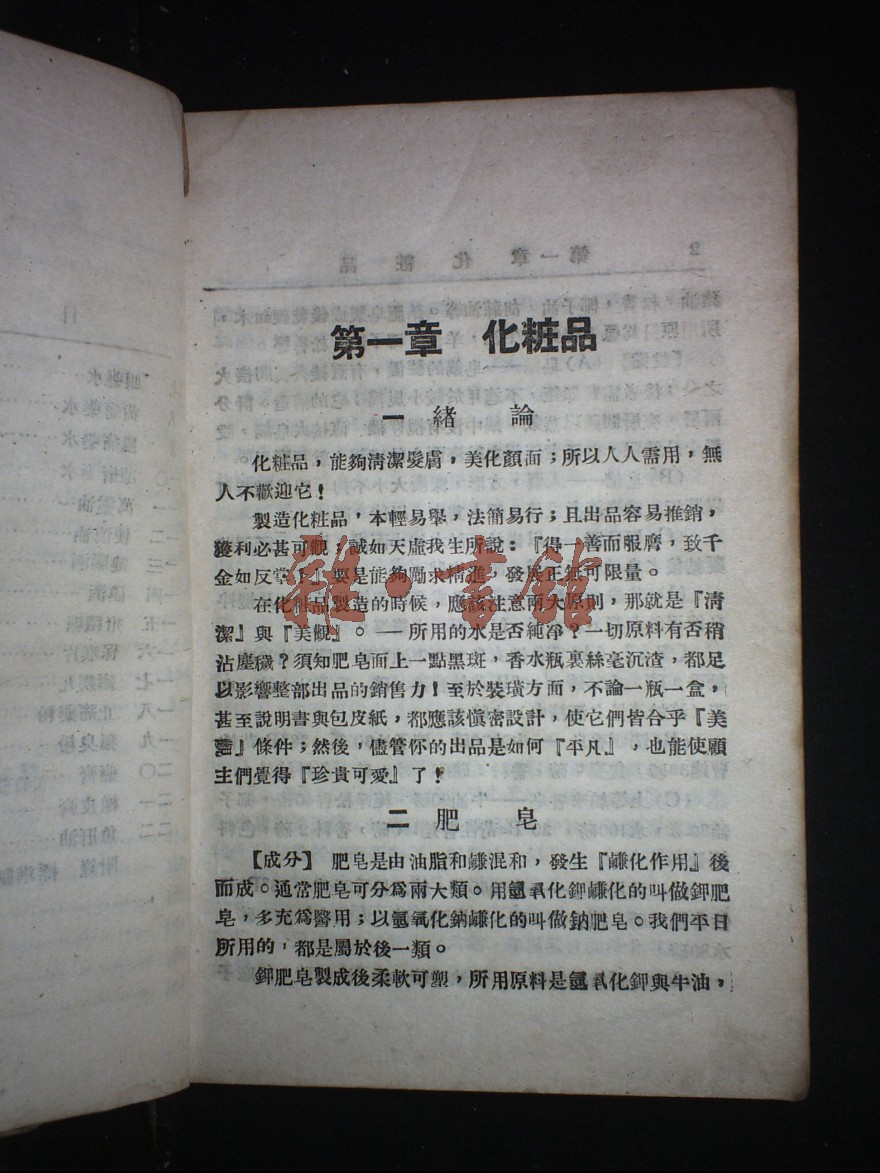 第一章 化粧品
一 緒 論
化粧品，能夠淸潔髮膚，美化顏面；所以人人需用，無
人不歡迎它！
製造化粧品，本輕易舉，法簡易行；且出品容易推銷，
獲利必甚可觀；誠如天虛我生所說：『得一善而服膺，致千
金如反掌！』要是能夠勵求精進，發展正無可限量。
在化粧品製造的時候，應該注意兩大原則，那就是『淸
潔』與『美觀』。——所用的水是否純淨？一切原料有否稍
沾塵穢？須知肥皂面上一點黑斑，香水瓶裏絲毫沉渣，都足
以影響整部出品的銷售力！至於裝璜方面，不論一瓶一盒，
甚至說明書與包皮紙，都應該愼密設計，使它們皆合乎『美
麗』條件；然後，儘管你的出品是如何『平凡』，也能使顧
主們覺得『珍貴可愛』了！
二 肥 皂
【成分】 肥皂是由油脂和鹻混和，發生『鹻化作用』後
而成。通常肥皂可分爲兩大類。用氫氧化鉀鹻化的叫做鉀肥
皂，多充爲醫用；以氫氧化鈉鹻化的叫做鈉肥皂。我們平日
所用的，都是屬於後一類。
鉀肥皂製成後柔軟可塑，所用原料是氫氧化鉀與牛油，
雜·書館